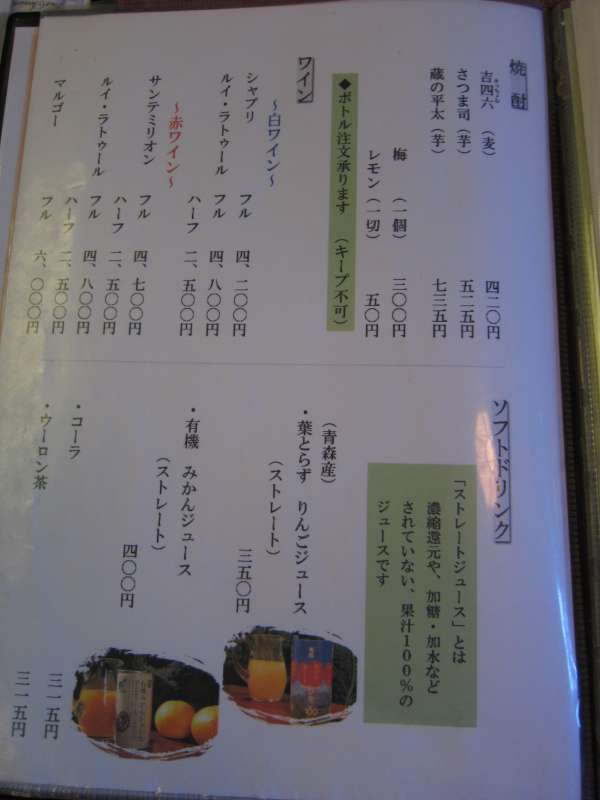 焼酎
吉四六 (麦) 四二〇円
きっちょむ
さつま司 (芋) 五二五円
蔵の平太 (芋) 七三五円
梅 (一個) 三〇〇円
レモン (一切) 五〇円
◆ボトル注文承ります (キープ不可)
ワイン
~白ワイン~
シャブリ フル 四、二〇〇円
ルイ・ラトゥール フル 四、八〇〇円
ハーフ 二、五〇〇円
~赤ワイン~
サンテミリオン フル 四、七〇〇円
ルイ・ラトゥール ハーフ 二、五〇〇円
フル 四、八〇〇円
マルゴー ハーフ 二、五〇〇円
フル 六、〇〇〇円
ソフトドリンク
「ストレートジュース」とは
濃縮還元や、加糖・加水など
されていない、果汁100%の
ジュースです
(青森産)
・葉とらず りんごジュース
(ストレート) 三五〇円
・有機 みかんジュース
(ストレート) 四〇〇円
・コーラ 三一五円
・ウーロン茶 三一五円